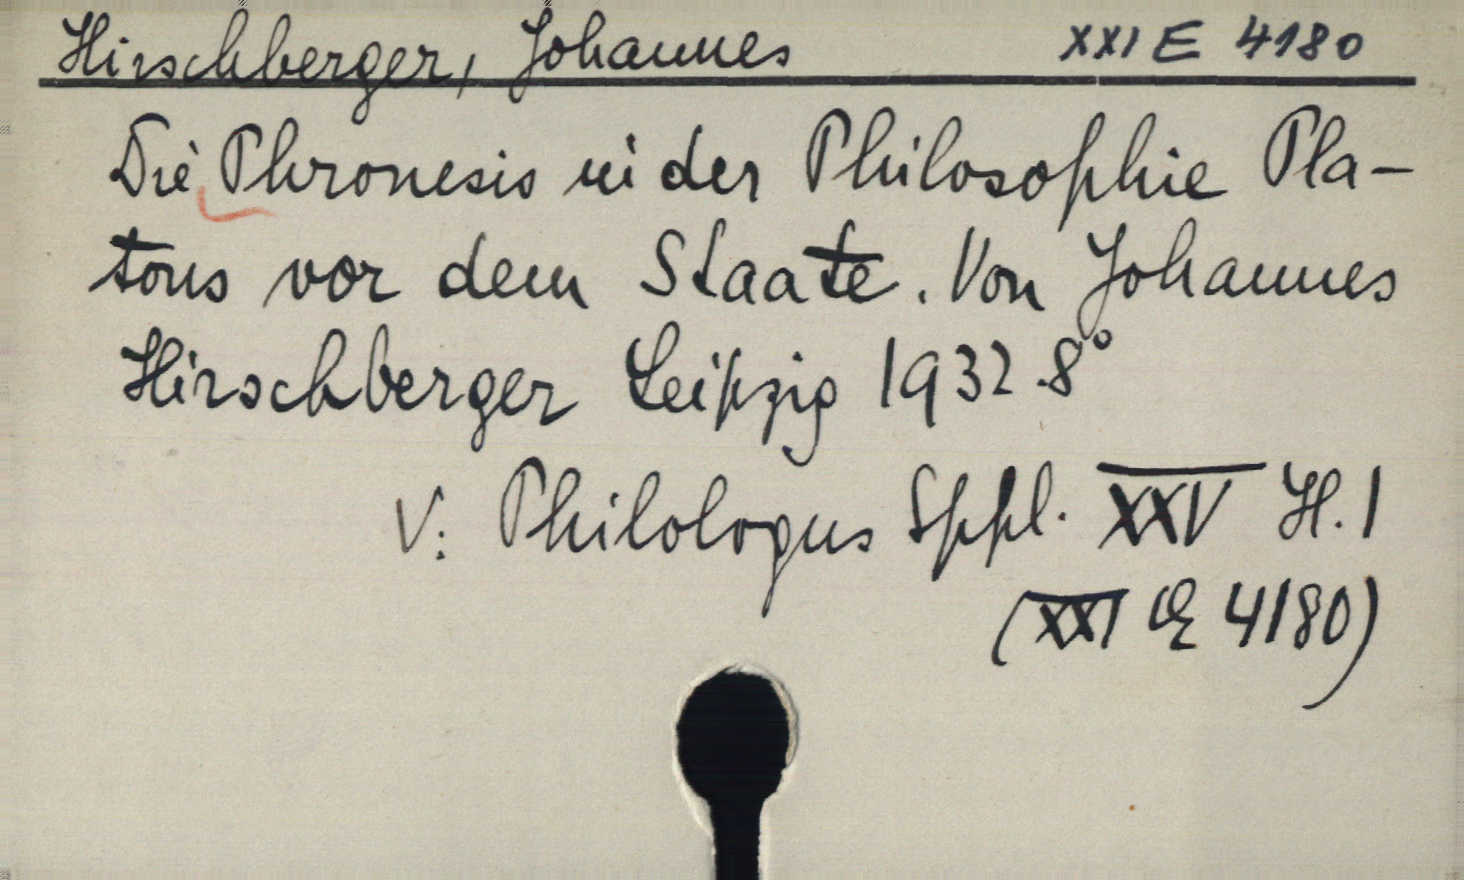 Hirschberger, Johannes XXI E 4180
Die Phronesis in der Philosophie Pla-
tons vor dem Staate. Von Johannes
Hirschberger Leipzig 1932 8°
V: Philologus Sppl. XXV H. 1
(XXI E 4180)